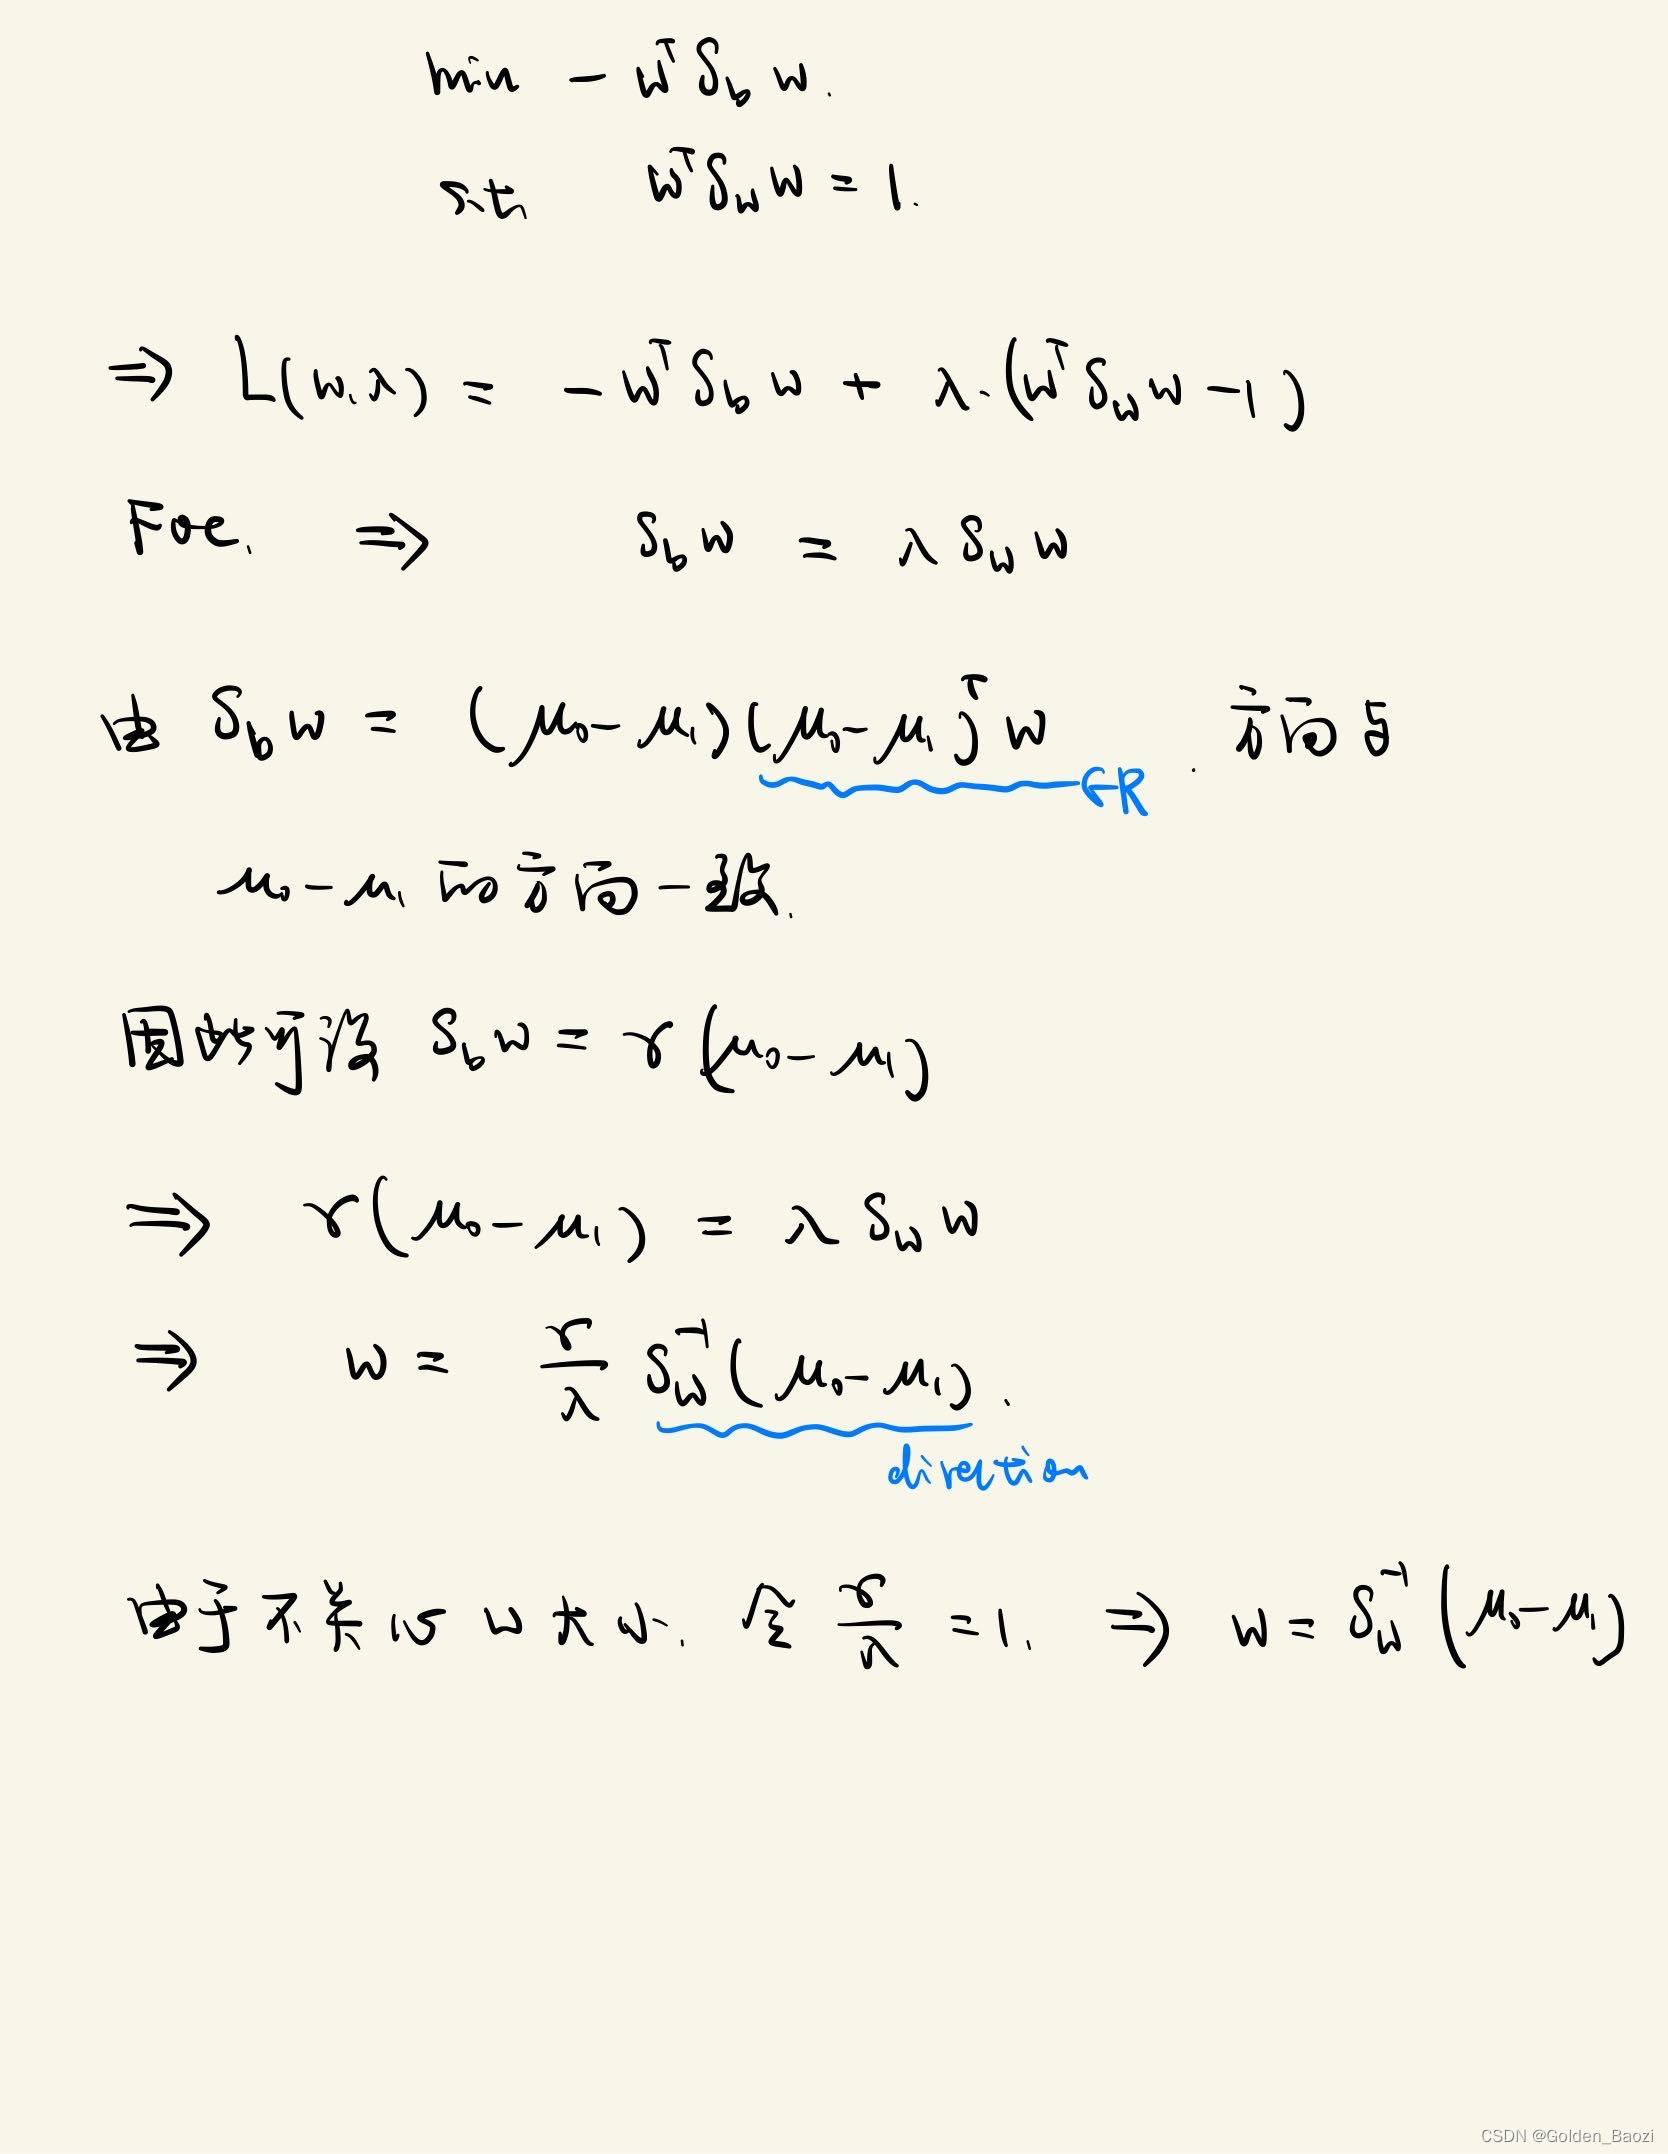 min - wᵀS_b w.
s.t. wᵀS_w w = 1.
⇒ L(w, λ) = - wᵀS_b w + λ·(wᵀS_w w - 1)
Foc. ⇒ S_b w = λ S_w w
由 S_b w = (μ₀ - μ₁)(μ₀ - μ₁)ᵀw . 方向与
∈R
μ₀ - μ₁ 的方向一致.
因此可设 S_b w = γ(μ₀ - μ₁)
⇒ γ(μ₀ - μ₁) = λ S_w w
⇒ w = γ/λ S_w⁻¹(μ₀ - μ₁).
direction
由于不关心 w 大小. 令 γ/λ = 1. ⇒ w = S_w⁻¹(μ₀ - μ₁)
CSDN @Golden_Baozi